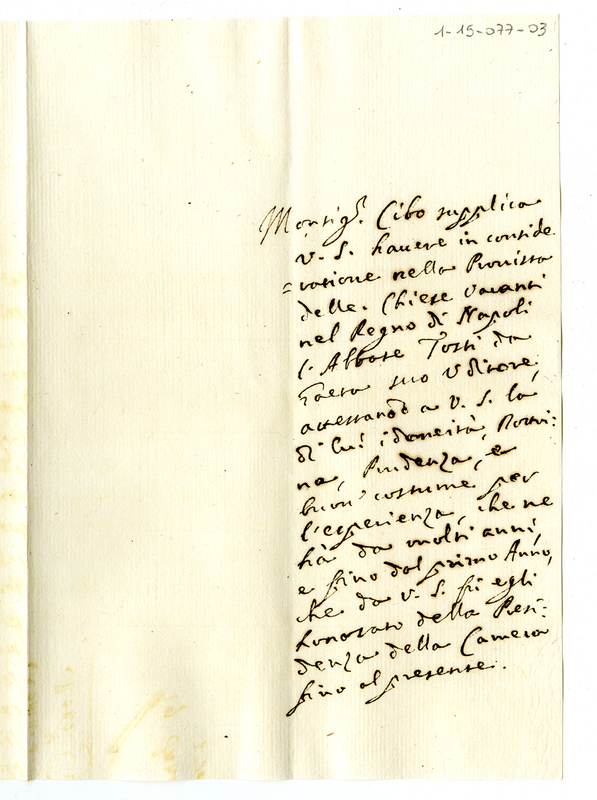 1-15-077-03
Monsig.r Cibo supplica
V. S. havere in conside
=ratione nella Provista
delle Chiese vacanti
nel Regno di Napoli
l'Abbate Tosti da
Gaeta suo Uditore,
attestando a V. S. la
di lui idoneità, Dottri:
na, Prudenza, e
buon costume per
l'esperienza, che ne
hà da molti anni,
e fino dal primo Anno,
che da V. S. fù egli
honorato della Presi:
denza della Camera
fino al presente.